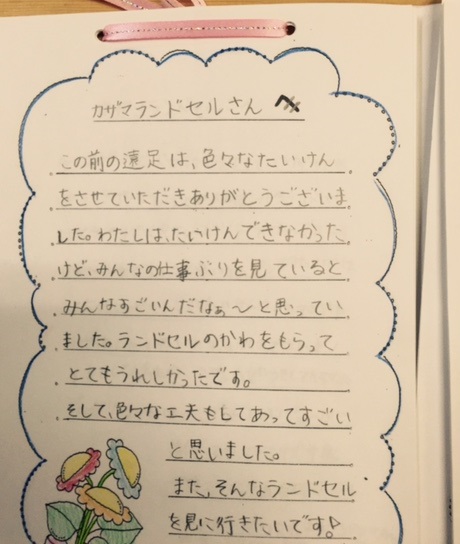 カザマランドセルさんへ
この前の遠足は、色々なたいけん
をさせていただきありがとうございま
した。わたしは、たいけんできなかった
けど、みんなの仕事ぶりを見ていると
みんなすごいんだなぁ〜と思ってい
ました。ランドセルのかわをもらって
とてもうれしかったです。
そして、色々な工夫もしてあってすごい
と思いました。
また、そんなランドセル
を見に行きたいです!